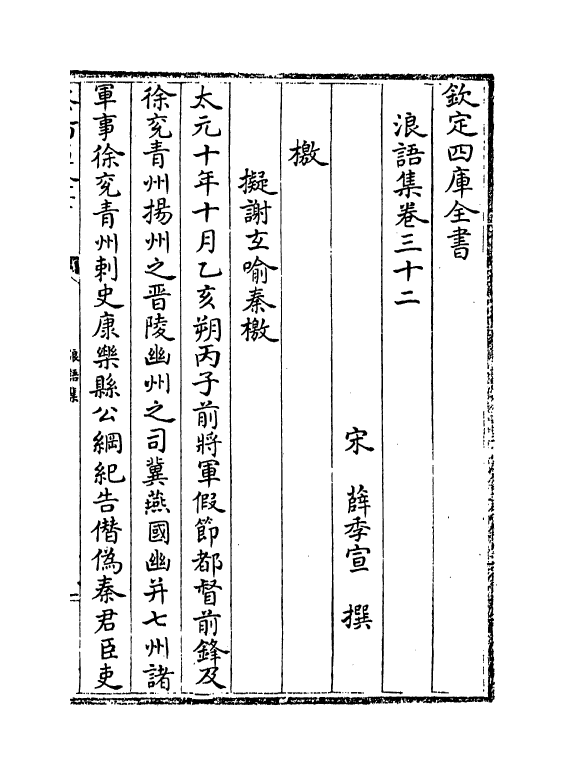 欽定四庫全書
浪語集卷三十二
宋　薛季宣　撰
檄
擬謝玄喻秦檄
太元十年十月乙亥朔丙子前將軍假節都督前鋒及
徐兖青州揚州之晋陵幽州之司冀燕國幽并七州諸
軍事徐兖青州刺史康樂縣公綱紀告僭偽秦君臣吏
浪語集